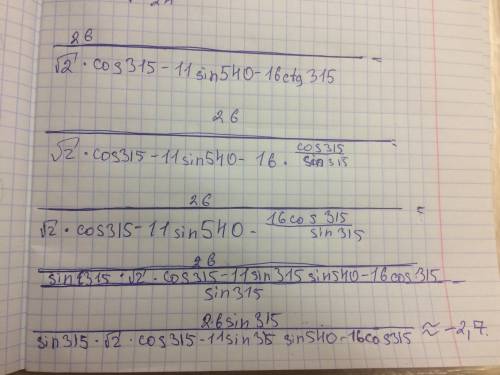 26
√2 · cos315 - 11 sin540 - 16ctg 315 =
26
√2 · cos315 - 11 sin540 - 16 · cos315/sin315 =
26
√2 · cos315 - 11 sin540 - 16cos 315/sin315 =
26
sin315 · √2 · cos315 - 11 sin315 sin540 - 16 cos315
sin315
26 sin315
sin315 · √2 · cos315 - 11 sin35 sin540 - 16cos315 ≈ -2,7.